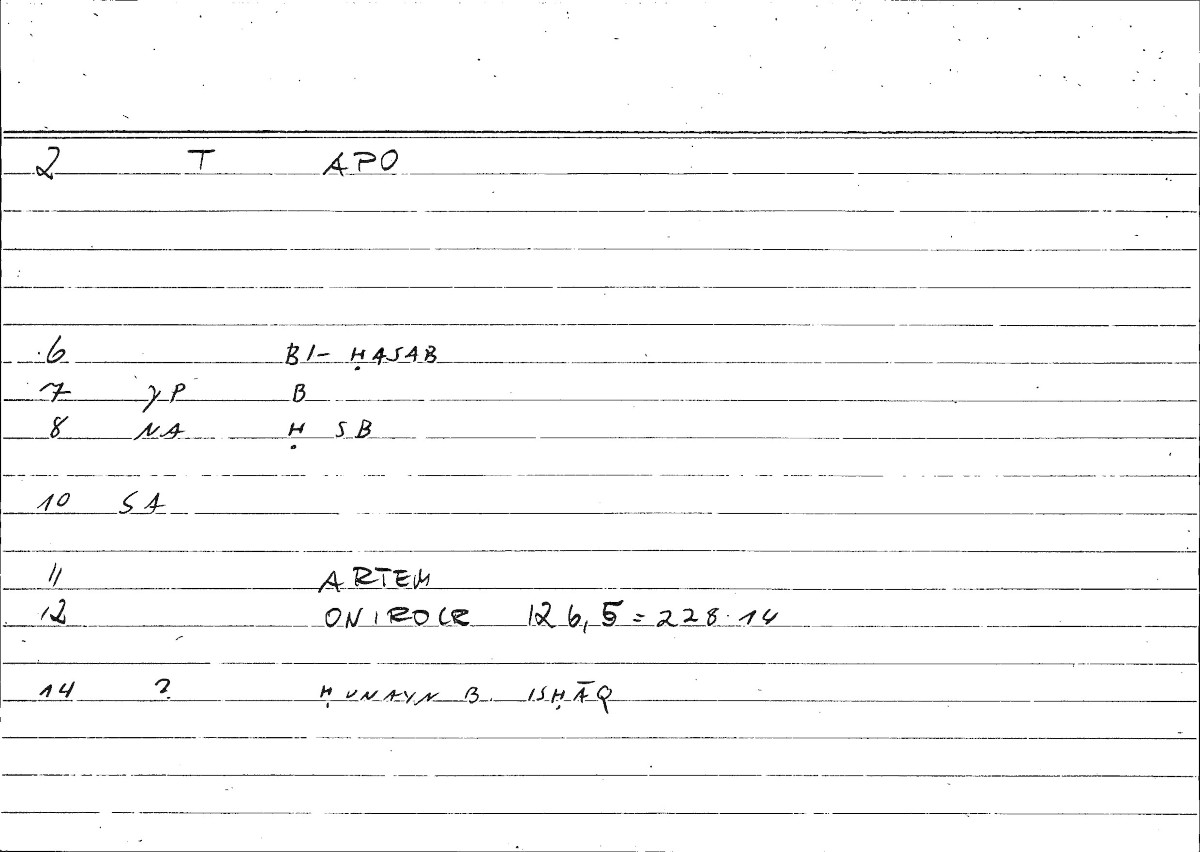 2 T APO
6 BI- ḤASAB
7 γP B
8 NA Ḥ SB
10 SA
11 ARTEM
12 ONIROCR 126,5 = 228.14
14 ? ḤUNAYN B. ISḤĀQ